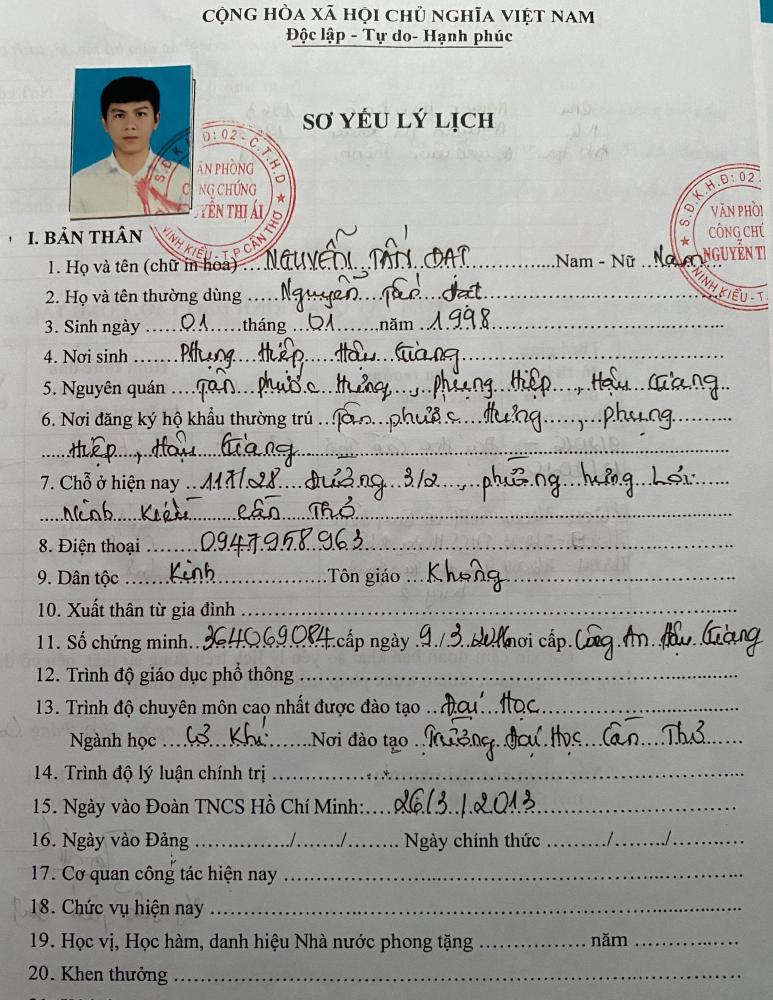 CỘNG HÒA XÃ HỘI CHỦ NGHĨA VIỆT NAM
Độc lập - Tự do- Hạnh phúc
SƠ YẾU LÝ LỊCH
S.Đ.K.H.Đ: 02 - C.T.H.D
VĂN PHÒNG
CÔNG CHỨNG
NGUYỄN THỊ ÁI
NINH KIỀU - T.P CẦN THƠ
S.Đ.K.H.Đ: 02
VĂN PHÒ
CÔNG CH
NGUYỄN T
NINH KIỀU - T.
I. BẢN THÂN
1. Họ và tên (chữ in hoa) NGUYỄN TẤN ĐẠT Nam - Nữ Nam
2. Họ và tên thường dùng Nguyễn Tấn Đạt
3. Sinh ngày 01 tháng 01 năm 1998
4. Nơi sinh Phụng Hiệp Hậu Giang
5. Nguyên quán Tân phước Hưng, phụng Hiệp, Hậu Giang
6. Nơi đăng ký hộ khẩu thường trú Tân phước Hưng, phụng
Hiệp, Hậu Giang
7. Chỗ ở hiện nay 117/28 đường 3/2, phường hưng Lợi
Ninh Kiều Cần Thơ
8. Điện thoại 0947958963
9. Dân tộc Kinh Tôn giáo Không
10. Xuất thân từ gia đình
11. Số chứng minh 364069084 cấp ngày 9/3 nơi cấp Công An Hậu Giang
12. Trình độ giáo dục phổ thông
13. Trình độ chuyên môn cao nhất được đào tạo Đại Học
Ngành học Cơ Khí Nơi đào tạo Trường Đại Học Cần Thơ
14. Trình độ lý luận chính trị
15. Ngày vào Đoàn TNCS Hồ Chí Minh: 26/3/2013
16. Ngày vào Đảng ....../....../...... Ngày chính thức ....../....../......
17. Cơ quan công tác hiện nay
18. Chức vụ hiện nay
19. Học vị, Học hàm, danh hiệu Nhà nước phong tặng ............ năm ............
20. Khen thưởng